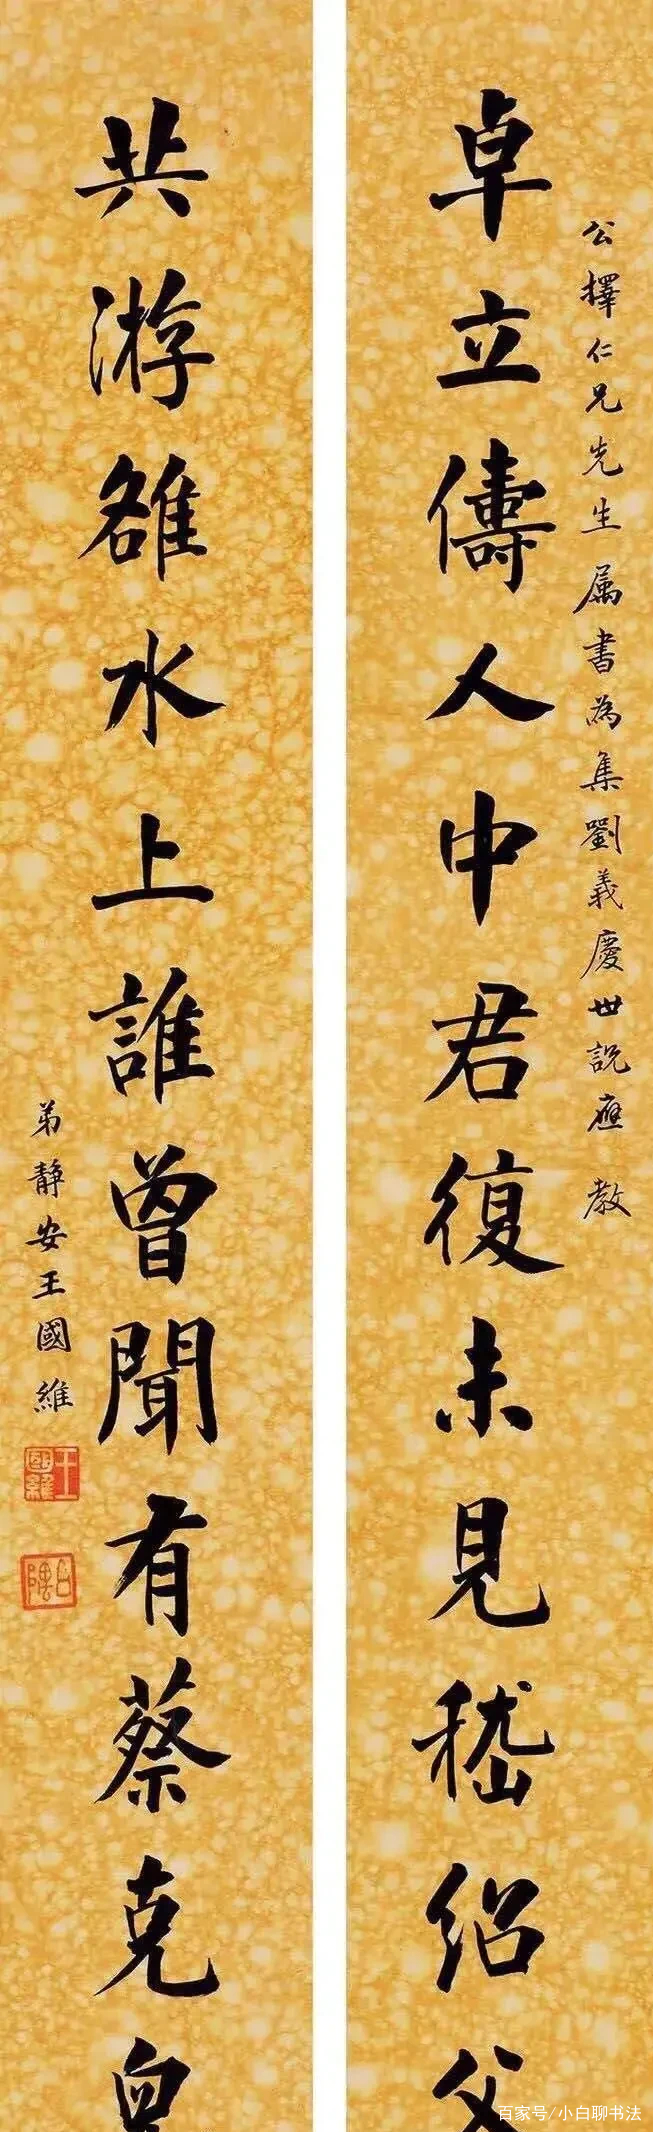 公擇仁兄先生属書為集劉義慶世說應教
卓立儔人中君復未見嵇紹父
共游雒水上誰曾聞有蔡克兒
弟靜安王國維
王國維
百家号/小白聊书法